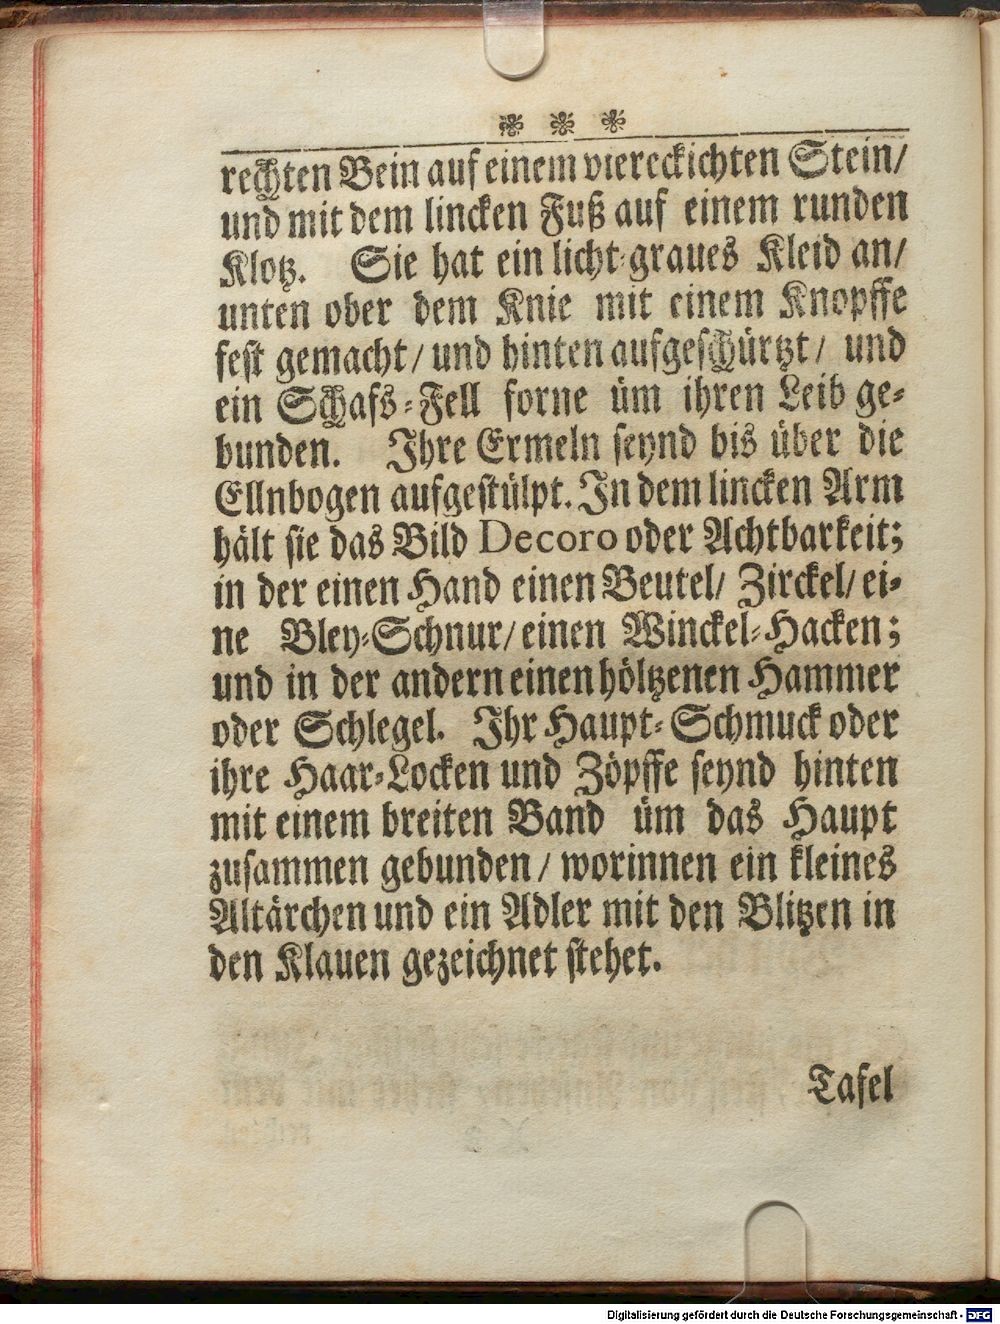 rechten Bein auf einem viereckichten Stein/
und mit dem lincken Fuß auf einem runden
Klotz. Sie hat ein licht-graues Kleid an/
unten ober dem Knie mit einem Knopffe
fest gemacht/ und hinten aufgeschürtzt/ und
ein Schafs-Fell forne üm ihren Leib ge-
bunden. Ihre Ermeln seynd bis über die
Ellnbogen aufgestülpt. In dem lincken Arm
hält sie das Bild Decoro oder Achtbarkeit;
in der einen Hand einen Beutel/ Zirckel/ ei-
ne Bley-Schnur/ einen Winckel-Hacken;
und in der andern einen höltzenen Hammer
oder Schlegel. Ihr Haupt-Schmuck oder
ihre Haar-Locken und Zöpffe seynd hinten
mit einem breiten Band üm das Haupt
zusammen gebunden/ worinnen ein kleines
Altärchen und ein Adler mit den Blitzen in
den Klauen gezeichnet stehet.
Tafel
Digitalisierung gefördert durch die Deutsche Forschungsgemeinschaft - DFG